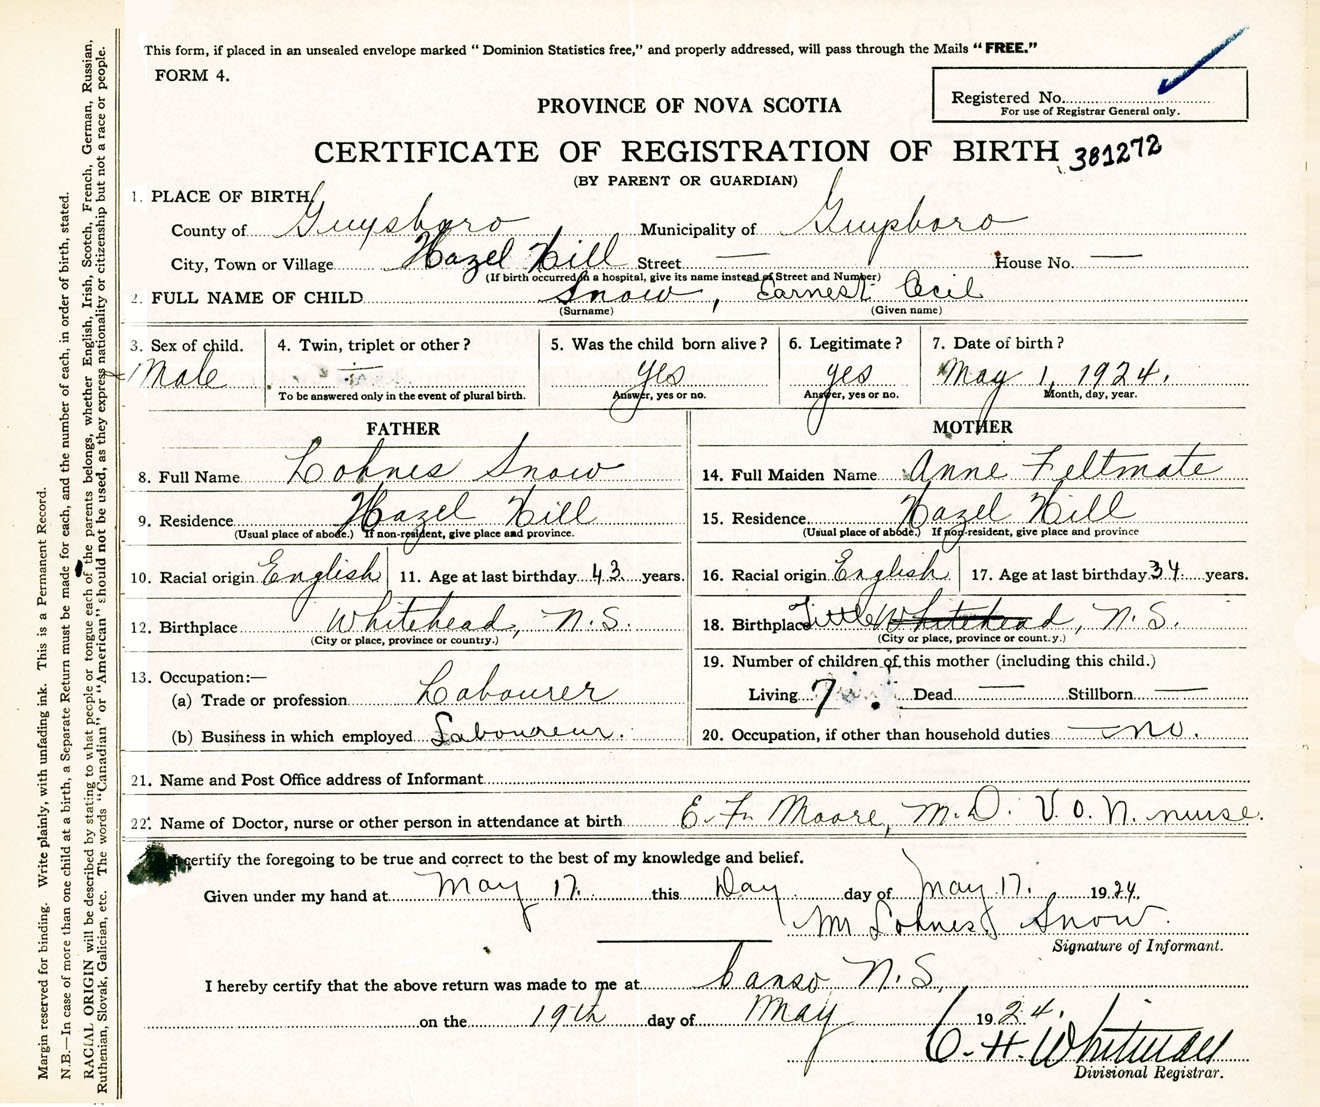 This form, if placed in an unsealed envelope marked "Dominion Statistics free," and properly addressed, will pass through the Mails "FREE."
FORM 4.
Registered No.
For use of Registrar General only.
PROVINCE OF NOVA SCOTIA
CERTIFICATE OF REGISTRATION OF BIRTH 381272
(BY PARENT OR GUARDIAN)
1. PLACE OF BIRTH
County of Guysboro Municipality of Guysboro
City, Town or Village Hazel Hill Street — House No. —
(If birth occurred in a hospital, give its name instead of Street and Number)
2. FULL NAME OF CHILD Snow, Earnest Cecil
(Surname) (Given name)
3. Sex of child. 4. Twin, triplet or other? 5. Was the child born alive? 6. Legitimate? 7. Date of birth?
Male — yes yes May 1, 1924.
To be answered only in the event of plural birth. Answer, yes or no. Answer, yes or no. Month, day, year.
FATHER MOTHER
8. Full Name Lohnes Snow 14. Full Maiden Name Anne Feltmate
9. Residence Hazel Hill 15. Residence Hazel Hill
(Usual place of abode.) If non-resident, give place and province. (Usual place of abode.) If non-resident, give place and province
10. Racial origin English 11. Age at last birthday 43 years. 16. Racial origin English 17. Age at last birthday 34 years.
12. Birthplace Whitehead, N.S. 18. Birthplace Little Whitehead, N.S.
(City or place, province or country.) (City or place, province or count.y.)
19. Number of children of this mother (including this child.)
13. Occupation:—
(a) Trade or profession Labourer Living 7 Dead — Stillborn —
(b) Business in which employed Laboureur. 20. Occupation, if other than household duties — no.
21. Name and Post Office address of Informant
22. Name of Doctor, nurse or other person in attendance at birth E. F. Moore, M.D. V.O.N. nurse.
certify the foregoing to be true and correct to the best of my knowledge and belief.
Given under my hand at May 17. this Day day of May 17. 1924.
Mr Lohnes Snow.
Signature of Informant.
I hereby certify that the above return was made to me at Canso N.S.
on the 19th day of May 1924.
C. H. Whitman
Divisional Registrar.
Margin reserved for binding. Write plainly, with unfading ink. This is a Permanent Record.
N.B.—In case of more than one child at a birth, a Separate Return must be made for each, and the number of each, in order of birth, stated.
RACIAL ORIGIN will be described by stating to what people or tongue each of the parents belongs, whether English, Irish, Scotch, French, German, Russian,
Ruthenian, Slovak, Galician, etc. The words "Canadian" or "American" should not be used, as they express nationality or citizenship but not a race or people.